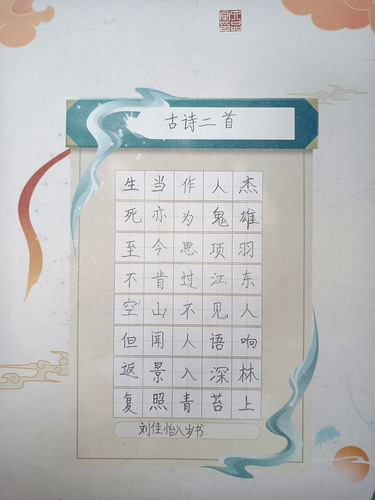 古诗二首
生当作人杰
死亦为鬼雄
至今思项羽
不肯过江东
空山不见人
但闻人语响
返景入深林
复照青苔上
刘佳怡八岁书